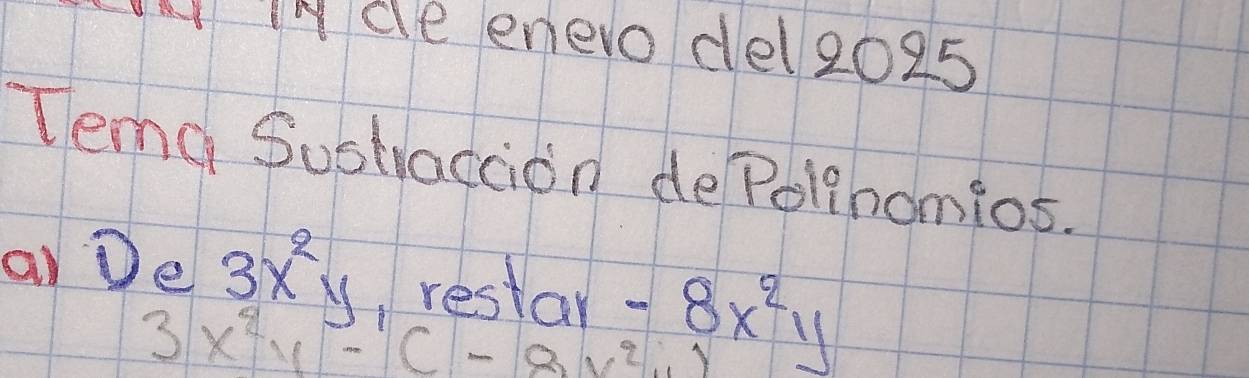 de enero del 2025
Tema Sustracción de Polinomios.
a) De 3x²y, restar - 8x²y
3x²y - ( - 8x²y)